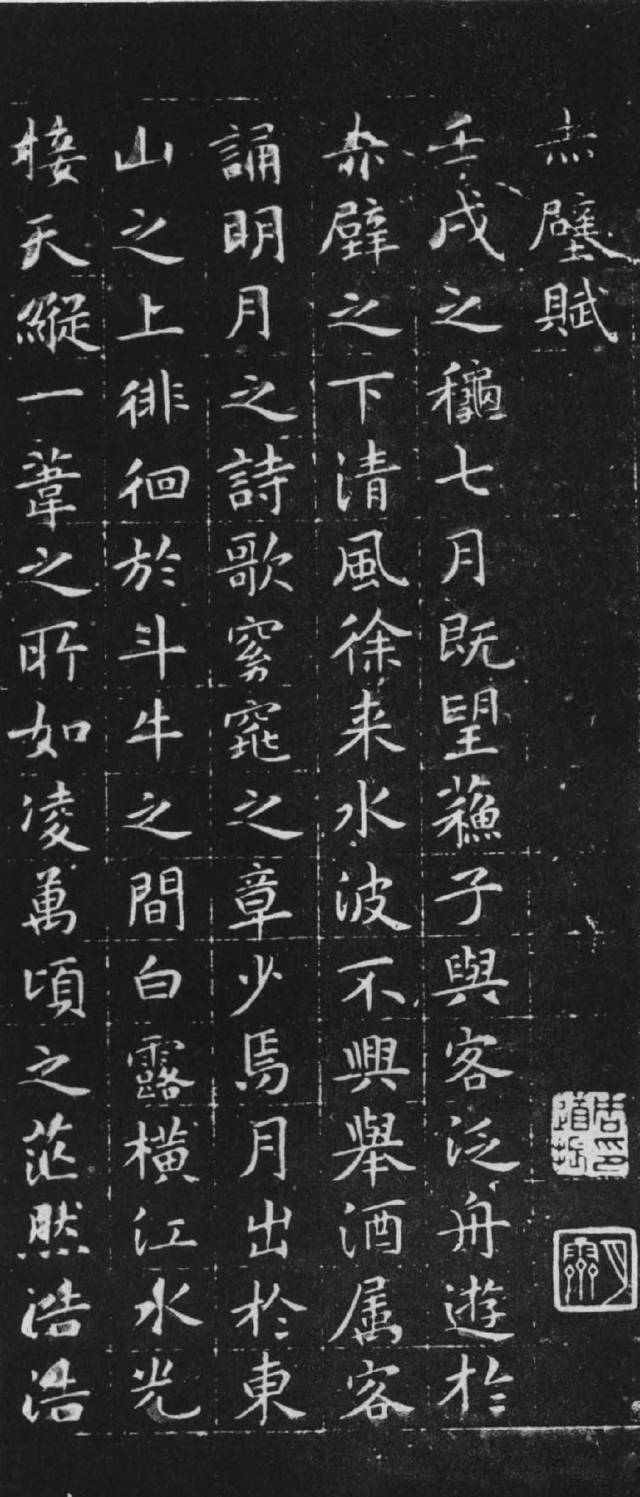 赤壁賦
壬戌之穐七月既望蘓子與客泛舟遊於
赤壁之下清風徐来水波不興舉酒属客
誦明月之詩歌窈窕之章少焉月出於東
山之上徘徊於斗牛之間白露橫江水光
接天縱一葦之所如凌萬頃之茫然浩浩
周印道振